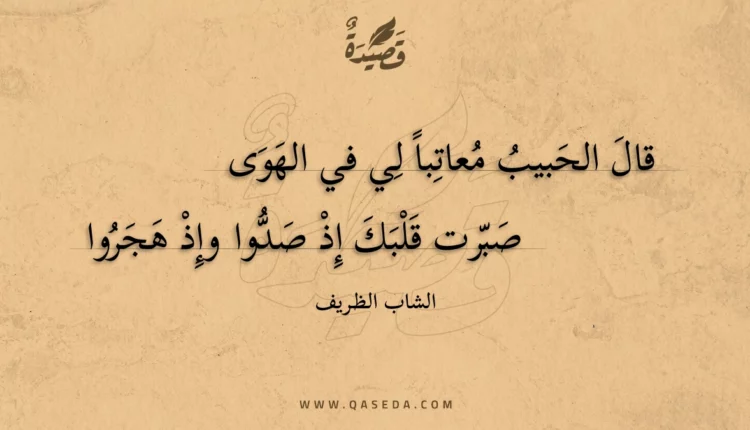 قَصِيْدَةٌ
قالَ الحَبيبُ مُعاتِباً لِي في الهَوَى
صَبّرت قَلْبَكَ إِذْ صَدُّوا وإِذْ هَجَرُوا
الشاب الظريف
WWW.QASEDA.COM